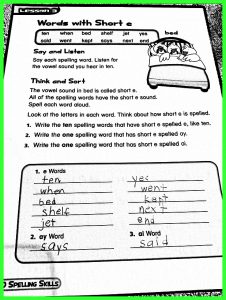 Lesson 3
Words with Short e
ten when bed shelf jet yes bed
said went kept says next end
Say and Listen
Say each spelling word. Listen for
the vowel sound you hear in ten.
Think and Sort
The vowel sound in bed is called short e.
All of the spelling words have the short e sound.
Spell each word aloud.
Look at the letters in each word. Think about how short e is spelled.
1. Write the ten spelling words that have short e spelled e, like ten.
2. Write the one spelling word that has short e spelled ay.
3. Write the one spelling word that has short e spelled ai.
1. e Words
ten yes
when went
bed kept
shelf next
jet end
2. ay Word 3. ai Word
says said
SPELLING SKILLS